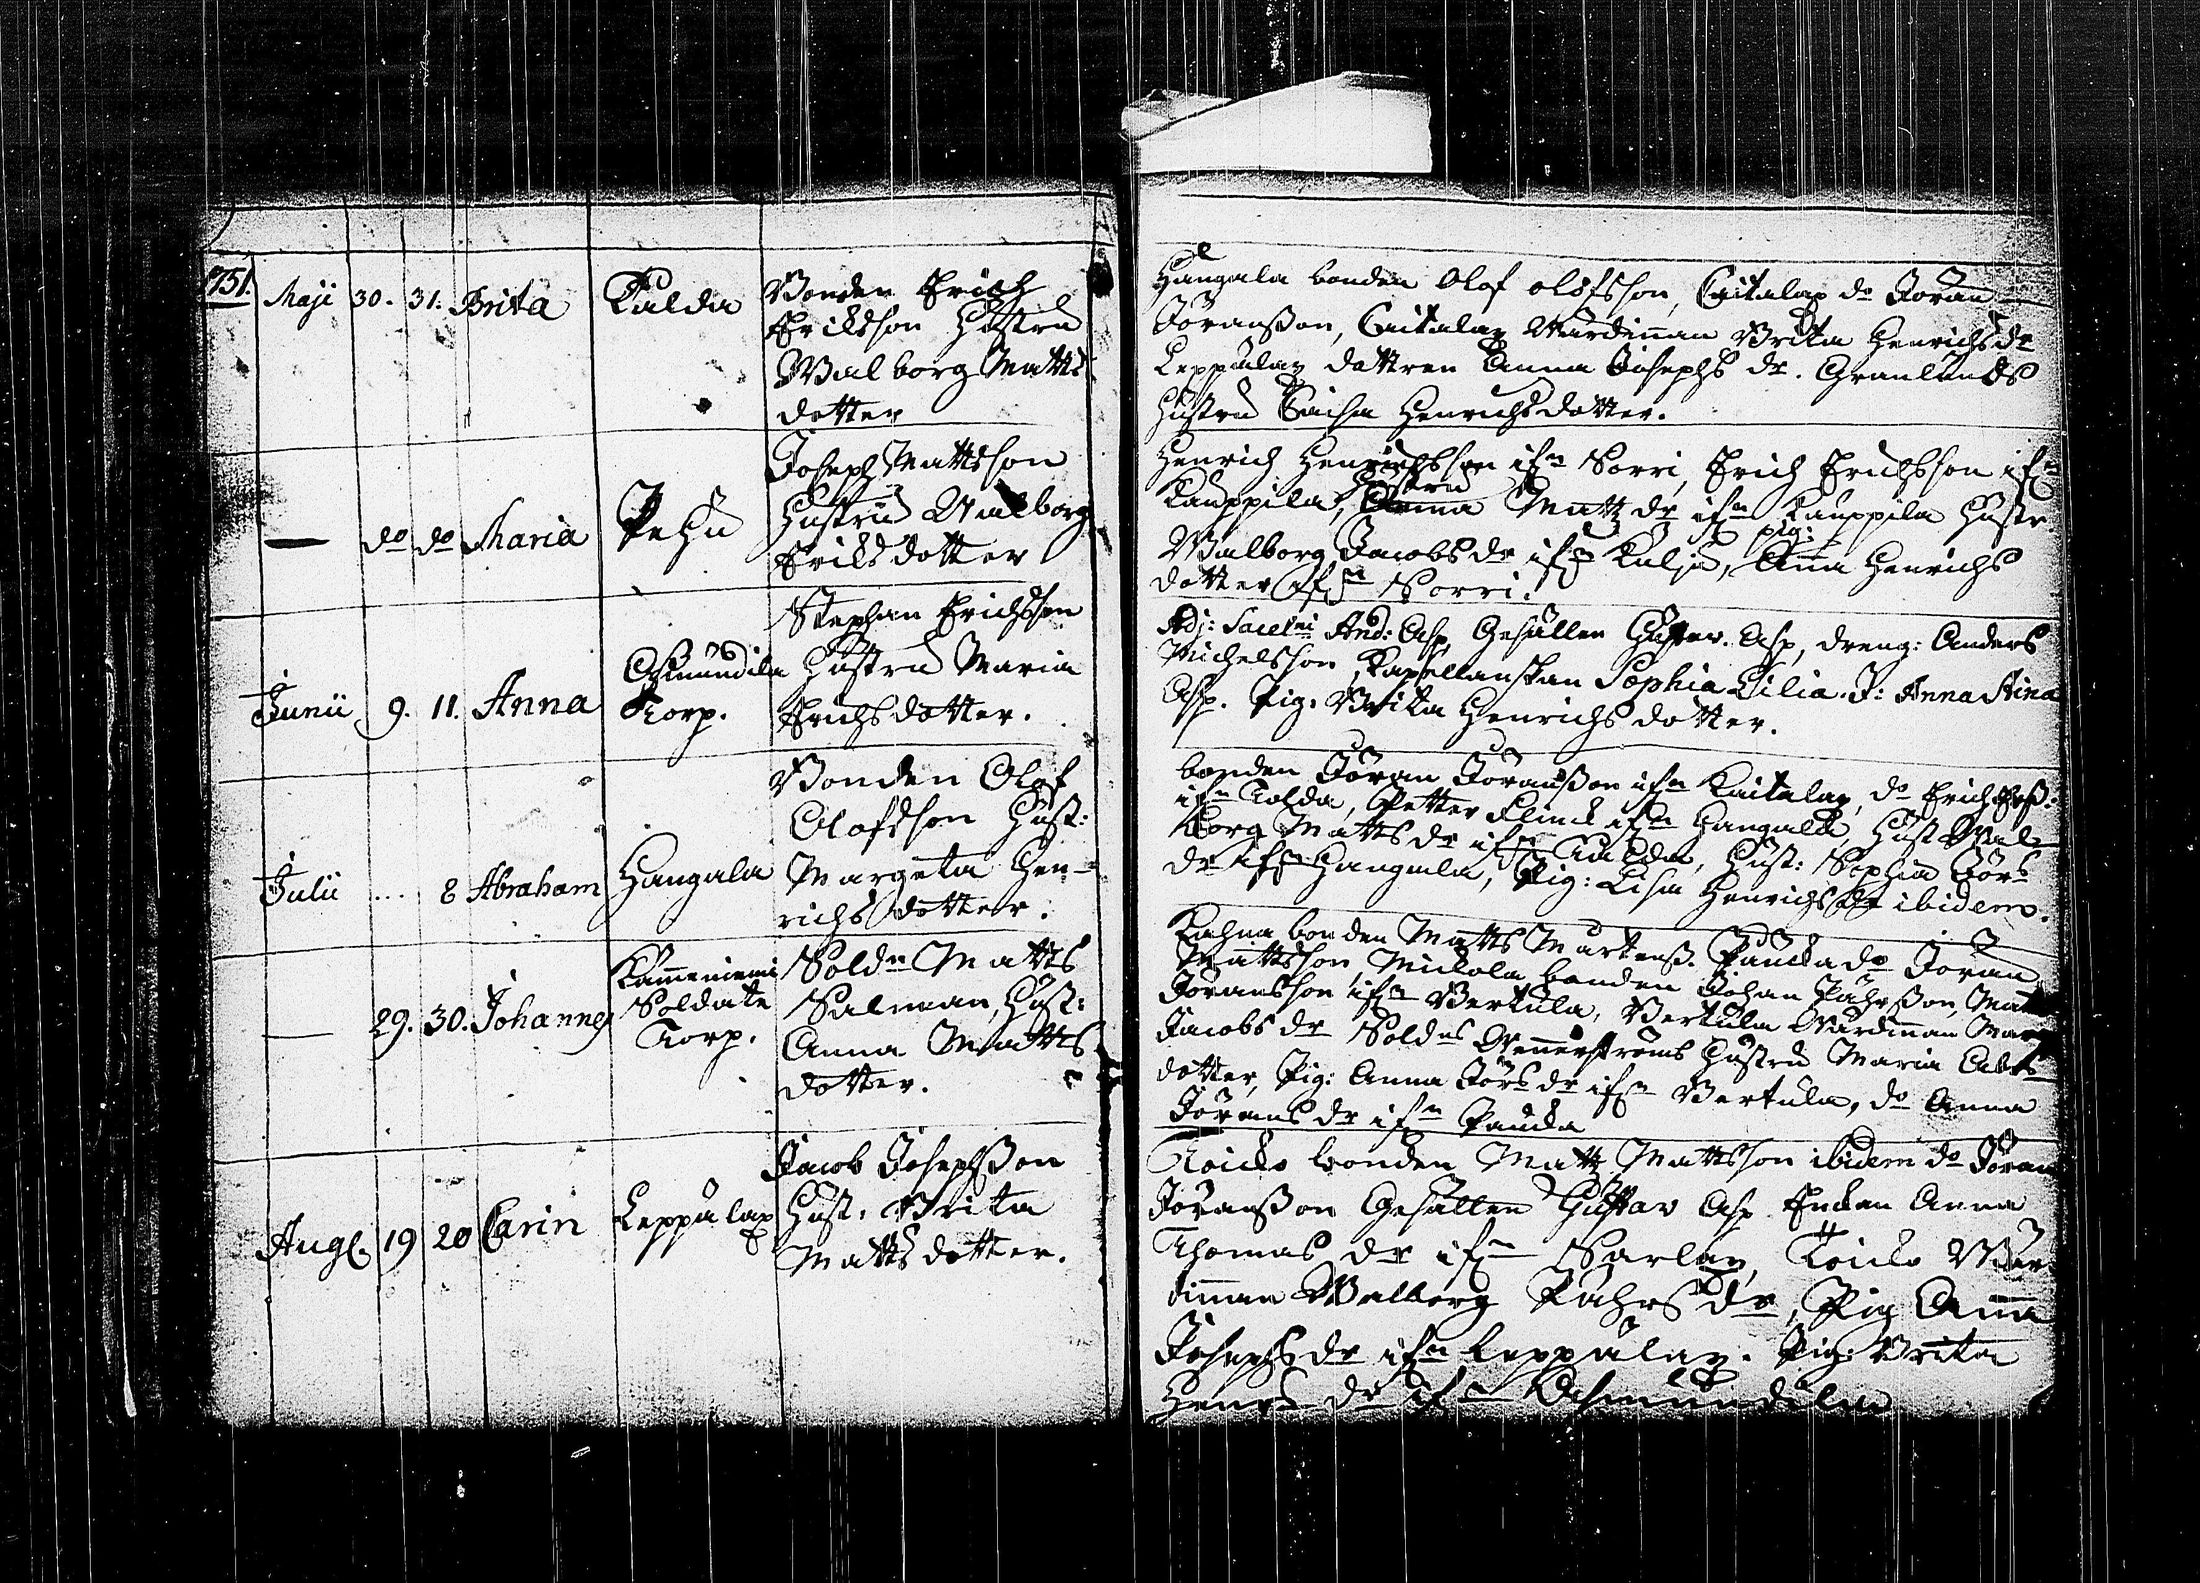 1751. Maji 30. 31. Brita Talda Bonden Erich
Erichson Hustru
Walborg Matts
dotter
— do do Maria Pehu Joseph Mattsson
Hustru Walborg
Erichsdotter
Junii 9. 11. Anna Osmundila Torp. Stephan Erichsson
Hustru Maria
Erichsdotter.
Julii ... 8 Abraham Hangala Bonden Olof
Olofsson Hust:
Margeta Hen-
richsdotter.
— 29. 30. Johannes Kämeniemi Soldate Torp. Soldn Matts
Salman, Hust:
Anna Matts
dotter.
Aug. 19 20 Carin Leppälax Jacob Josephsson
Hust. Brita
Matts dotter.
Hangala bonden Olof Olofsson, Caitalax do Jöran
Jöransson, Caitalax Wärdinnan Brita Henrichs dr
Leppälax dottren Anna Josephs dr. Granlunds
Hustru Caisa Henrichsdotter.
Henrich Henrichsson ifrn Sorri, Erich Erichsson ifrn
Kauppila, Hustru Anna Matts dr ifrn Kauppila Hustr
Walborg Jacobs dr ifrn Kulju, pig: Anna Henrichs
dotter ifrn Sorri.
Adj: Sacelni And: Asp, Gesällen Gustav. Asp, dreng: Anders
Michelsson, Kapellanskan Sophia Lilia. J: Anna Stina
Asp. Pig. Brita Henrichs dotter.
bonden Jöran Jöransson ifrn Kaitalax, do Erich Ersß:
ifrn Talda, Petter Flinck ifrn Hangala, Hust Wal-
borg Matts dr ifrn Talda, Hust: Sophia Jörs
dr ifrn Hangala, Pig: Lisa Henrichs dr ibidem.
Kahna bonden Matts Martenss. Paucka do Jöran
Mattsson Mickola bonden Johan Påhrsson, Matts
Jöransson ifrn Bertula, Bertula Wärdinnan Marg
Jacobs dr Soldns Wennerströms Hustru Maria Abrs
dotter, Pig: Anna Jörs dr ifrn Bertula, do Anna
Jörans dr ifrn Paucka
Toicko bonden Matts Mattsson ibidem do Jöran
Jöransson Gesällen Gustav Asp Enkan Anna
Thomas dr ifrn Sarlax, Toicko Wär
dinnan Walborg Påhrs dr, Pig Anna
Josephs dr ifrn Leppälax. Pig: Brita
Henrs dr ifrn Osmundila